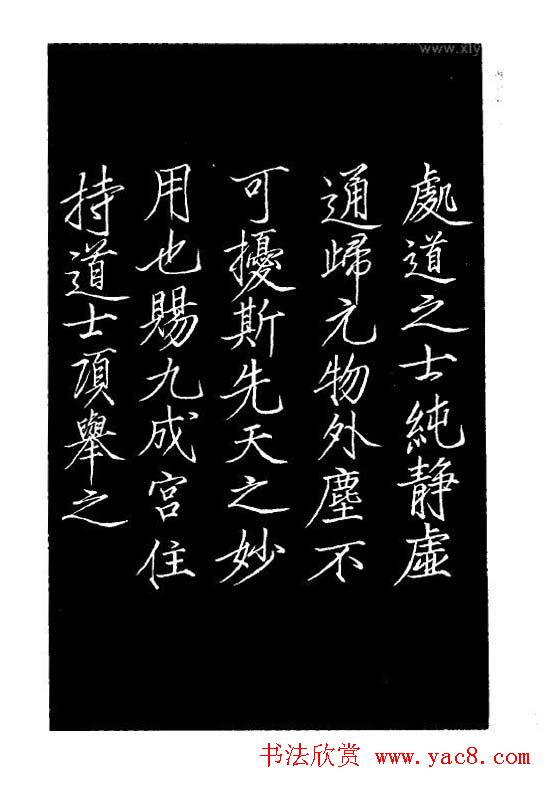 處道之士純静虛
通歸元物外塵不
可擾斯先天之妙
用也賜九成宮住
持道士項舉之
www.xly
书法欣赏 www.yac8.com